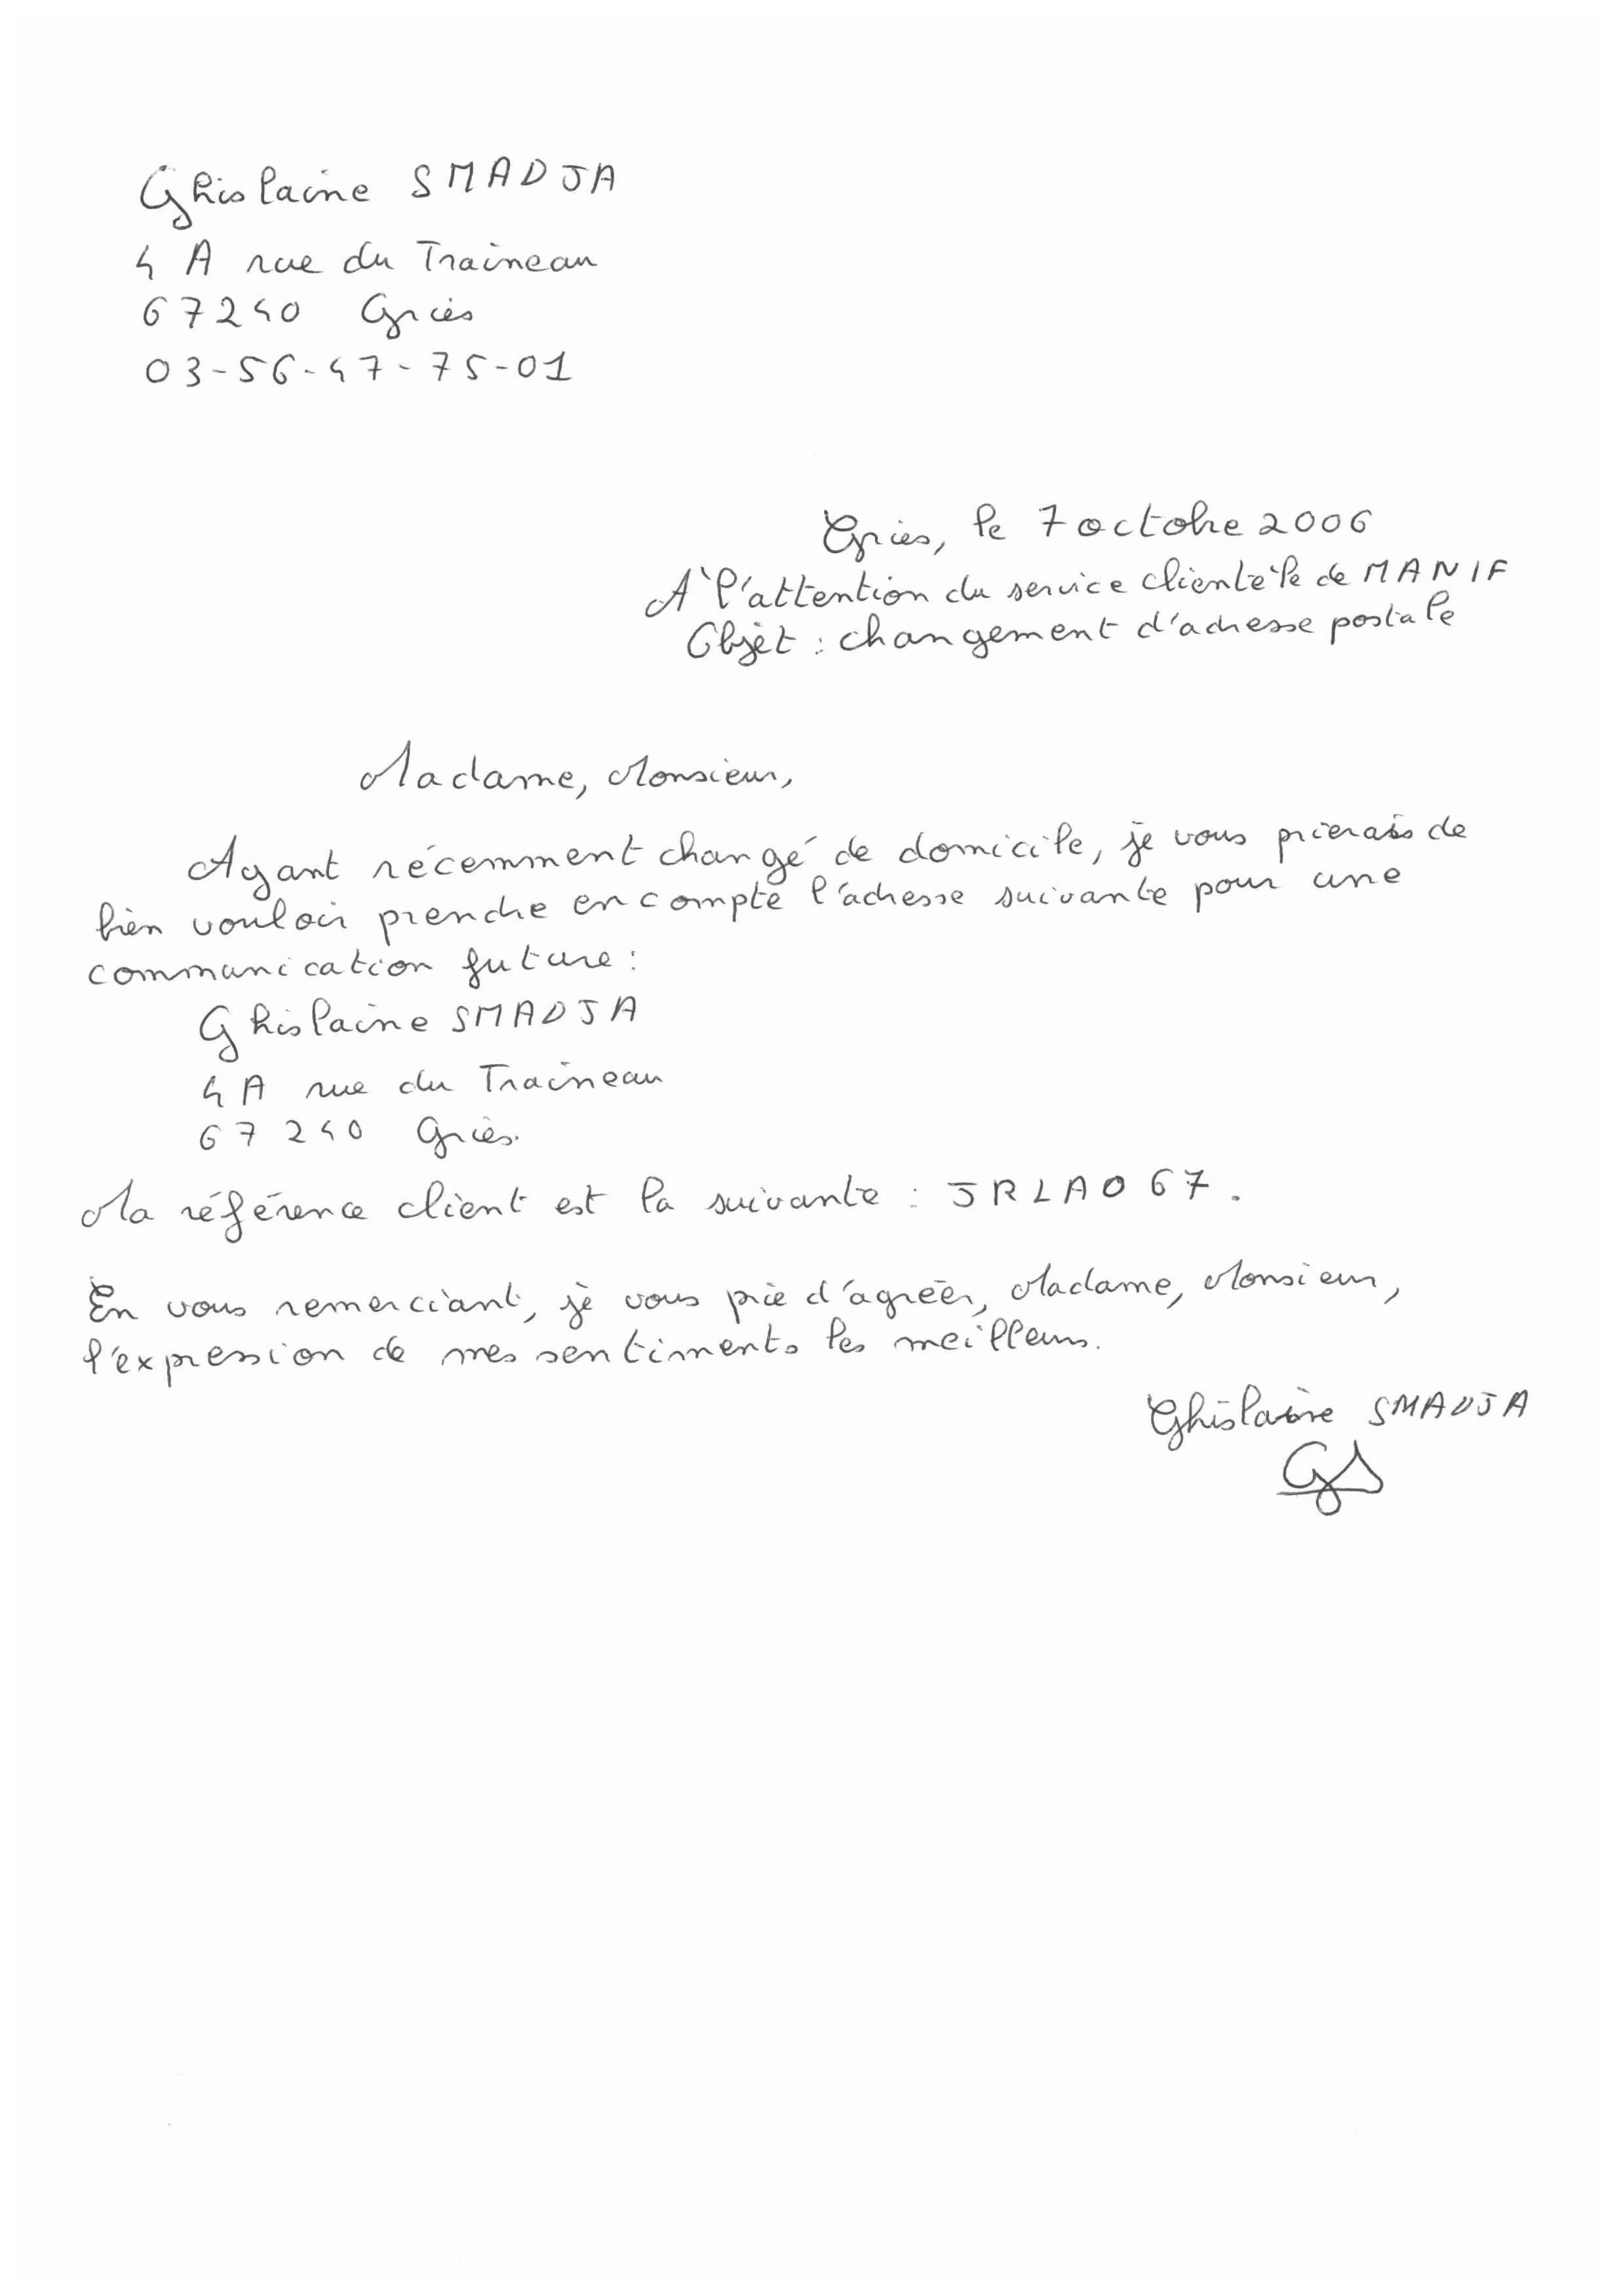 Ghislaine SMADJA
4 A rue du Traineau
67240 Gries
03-56-47-75-01
Gries, le 7 octobre 2006
A l'attention du service clientèle de MANIF
Objet : changement d'adresse postale
Madame, Monsieur,
Ayant récemment changé de domicile, je vous prierais de
bien vouloir prendre en compte l'adresse suivante pour une
communication future :
Ghislaine SMADJA
4 A rue du Traineau
67240 Gries.
Ma référence client est la suivante : JRLAO67.
En vous remerciant, je vous prie d'agréer, Madame, Monsieur,
l'expression de mes sentiments les meilleurs.
Ghislaine SMADJA
GS